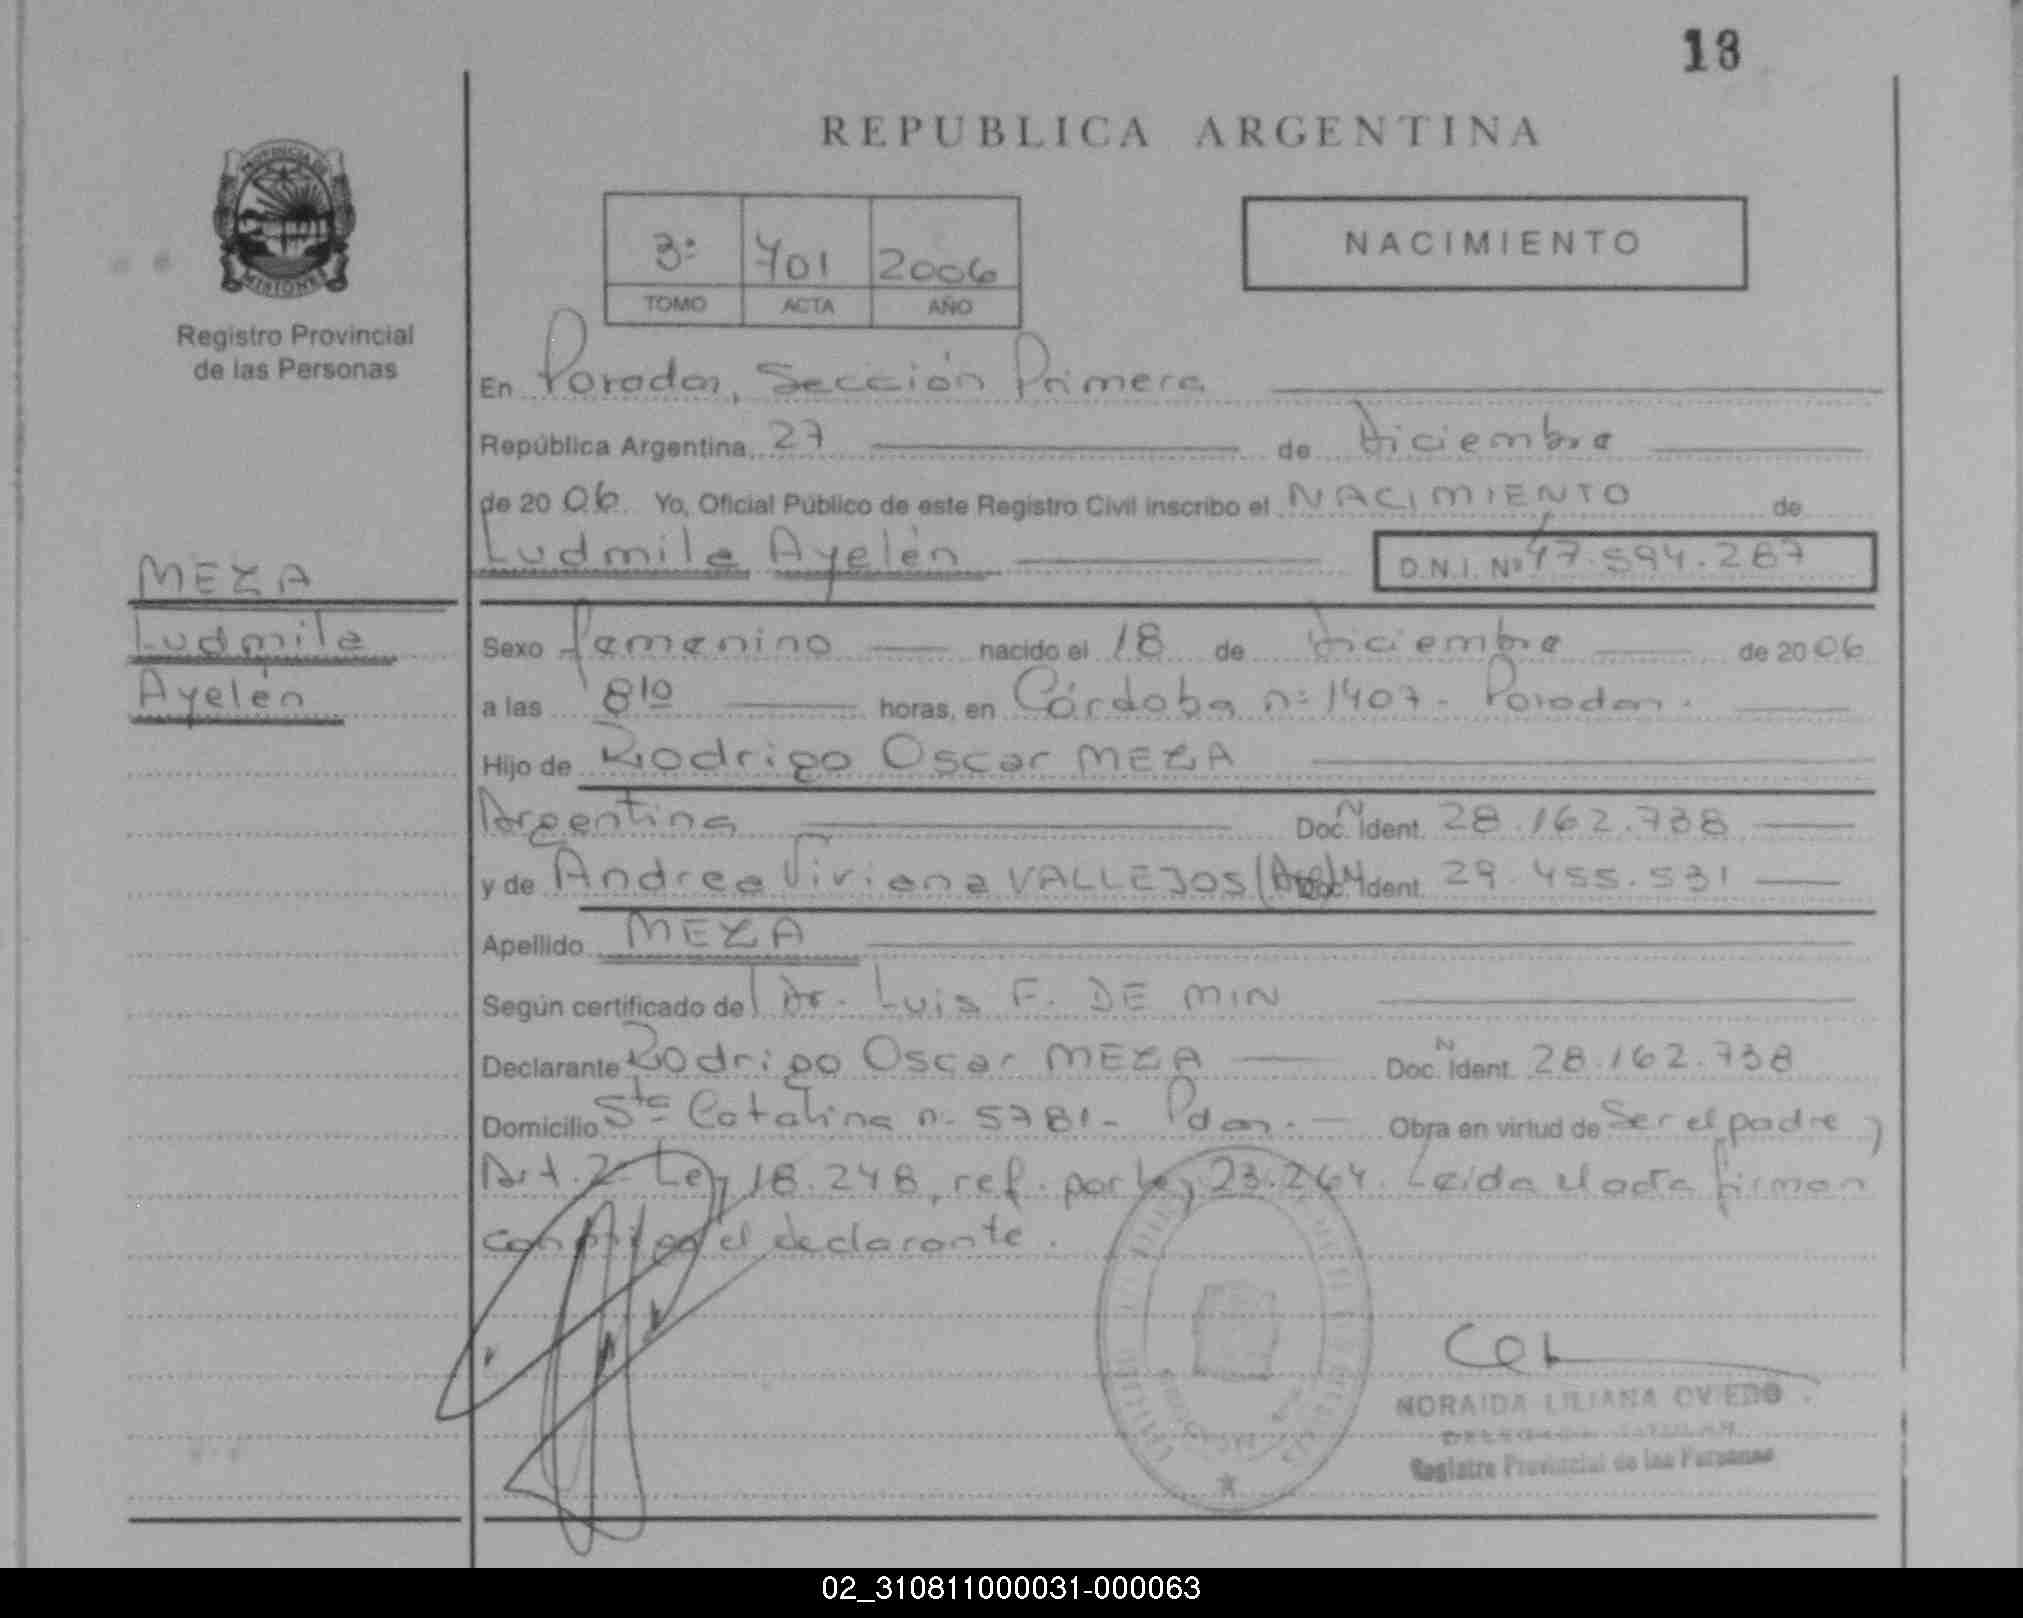 13
REPUBLICA ARGENTINA
PROVINCIA DE
MISIONES
Registro Provincial
de las Personas
NACIMIENTO
3º 701 2006
TOMO ACTA AÑO
En Posadas, Sección Primera
República Argentina, 27 de Diciembre
de 2006. Yo, Oficial Público de este Registro Civil inscribo el NACIMIENTO de
Ludmila Ayelén D.N.I. Nº 47.594.287
MEZA
Ludmila
Ayelén
Sexo femenino nacido el 18 de Diciembre de 2006
a las 8 10 horas, en Córdoba nº 1407 - Posadas.
Hijo de Rodrigo Oscar MEZA
Argentina Doc. N Ident. 28.162.738
y de Andrea Viviana VALLEJOS (Arg) N Doc. Ident. 29.455.531
Apellido MEZA
Según certificado de Dr. Luis F. DE MIN
Declarante Rodrigo Oscar MEZA Doc. N Ident. 28.162.738
Domicilio Sta Catalina n- 5781- Pdas. - Obra en virtud de Ser el padre y
Art. 2º Ley 18.248, ref. por Ley 23.264. Leída el acta firman
conmigo el declarante.
NORAIDA LILIANA OVIEDO
Registro Provincial de las Personas
02_310811000031-000063